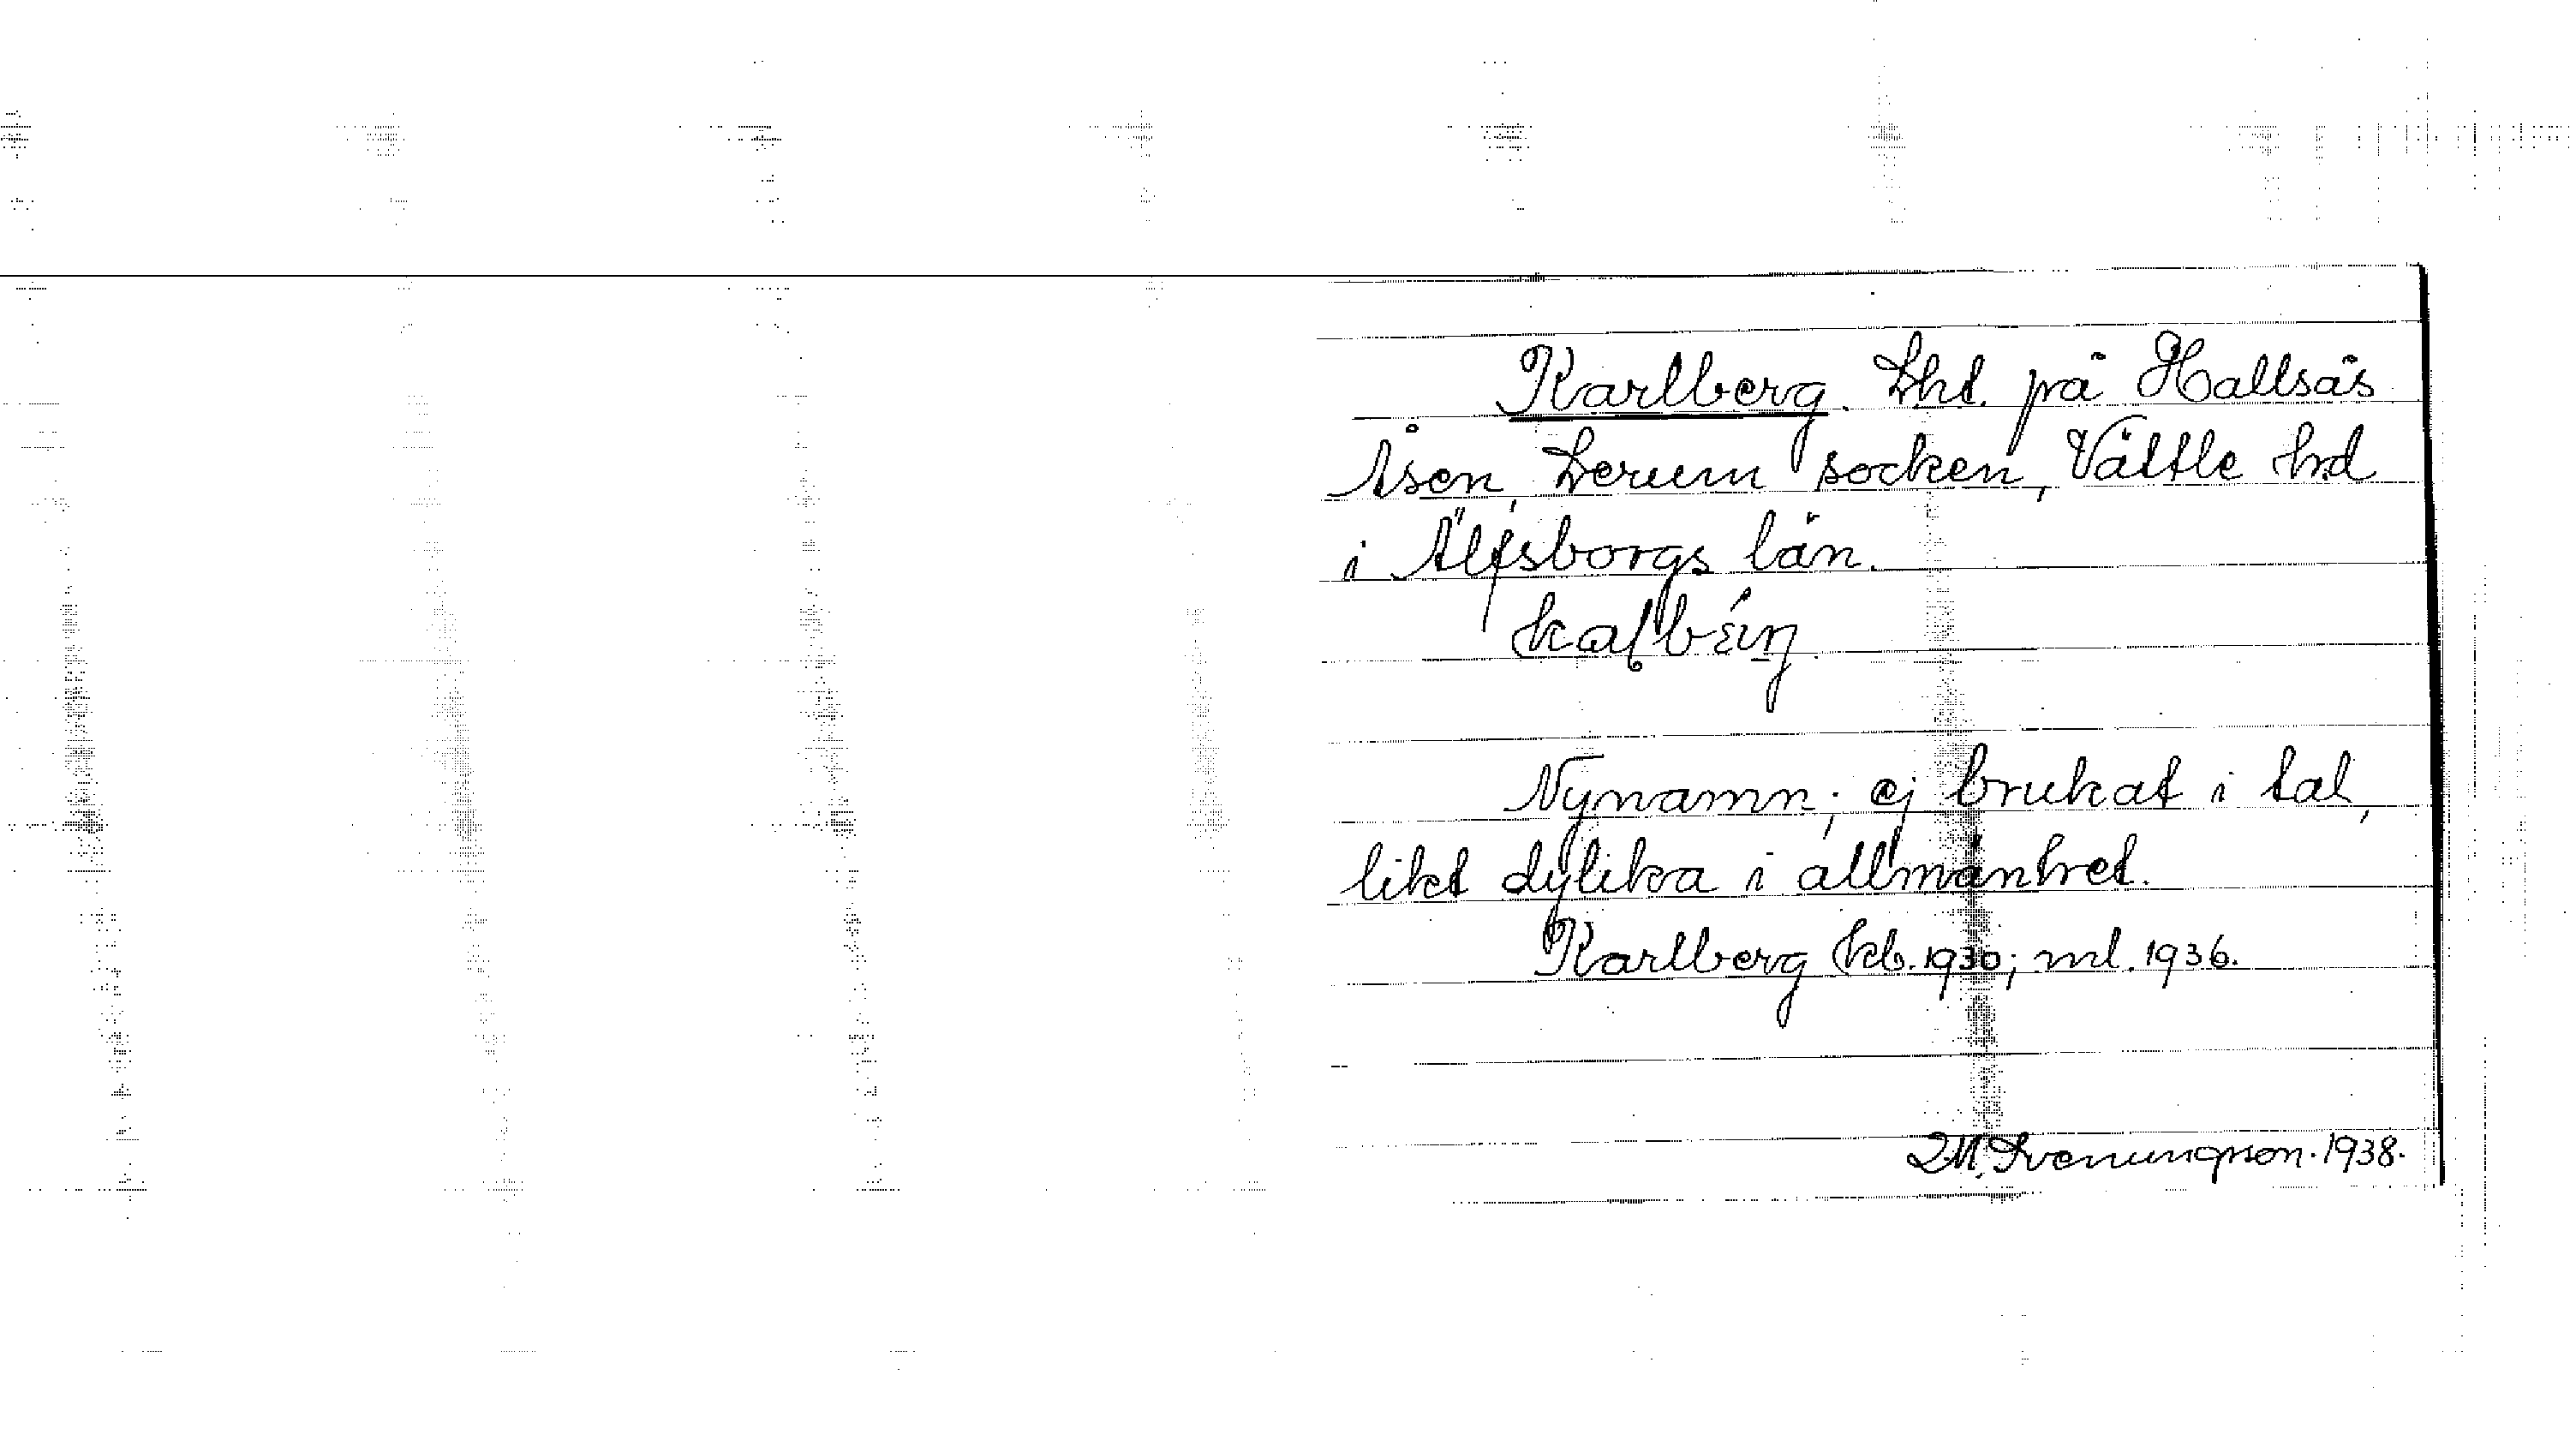 Karlberg. Lht. på Hallsås
Åsen, Lerum socken, Vättle hd
i Älfsborgs län.
Nynamn; ej brukat i tal,
likt dylika i allmänhet.
Karlberg kb. 1930; ml. 1936.
Svenungsson. 1938.